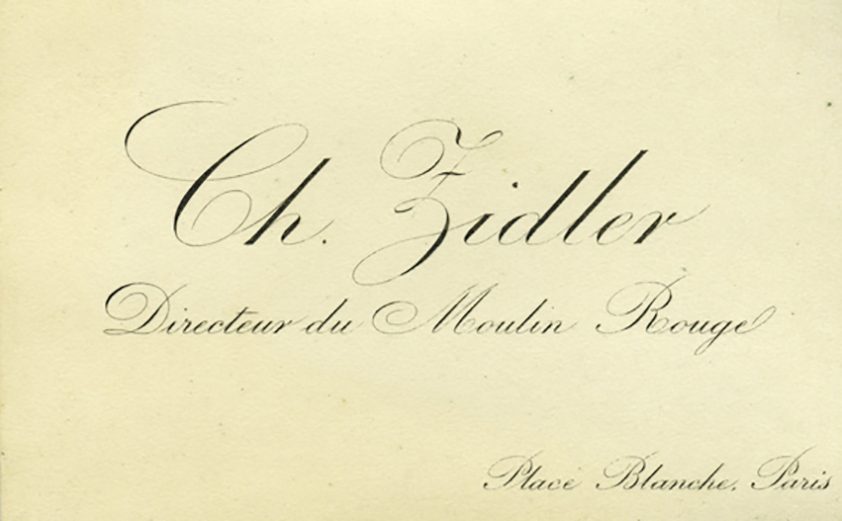 Ch. Zidler
Directeur du Moulin Rouge
Place Blanche. Paris